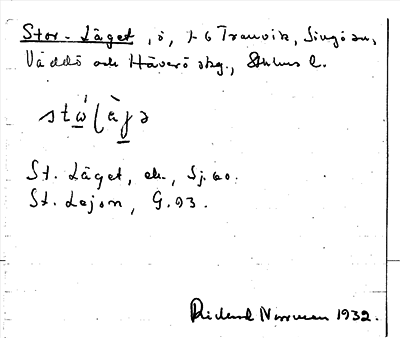 Stor-Läget, ö, t. G Tranvik, Singö sn,
Väddö och Häverö skg., Sthlms l.
stὼlὰjə
St. Läget, ek., Sj. 60.
St. Lejon, G. 93.
Rickard Norrman 1932.